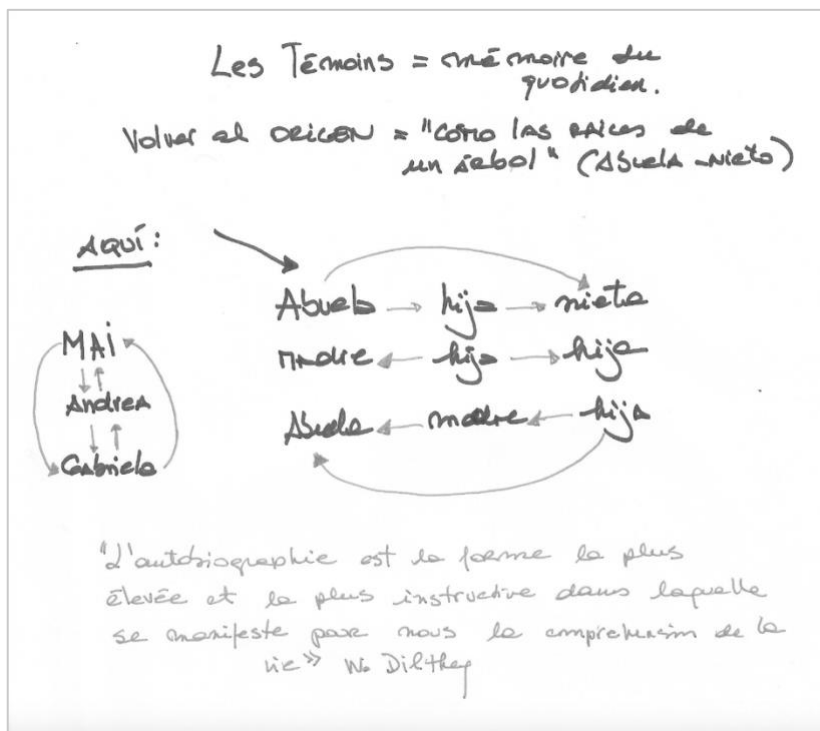 Les Témoins = mémoire du
quotidien.
Volver al ORIGEN = "cómo las raíces de
un árbol" (Abuela - Nieto)
AQUÍ:
Abuela → hija → nieta
Madre ← hija → hija
Abuela ← madre ← hija
MAÏ
Andrea
Gabriela
"L'autobiographie est la forme la plus
élevée et la plus instructive dans laquelle
se manifeste pour nous la comprehension de la
vie» W. Dilthey